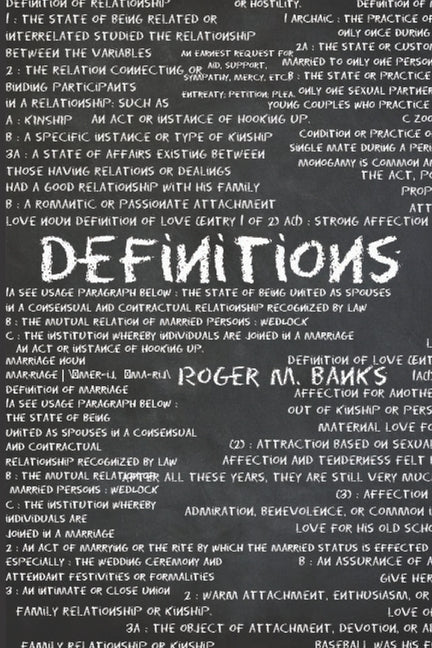 DEFINITION OF RELATIONSHIP
OR HOSTILITY.
DEFINITION OF
1 : THE STATE OF BEING RELATED OR
1 ARCHAIC : THE PRACTICE OF
INTERRELATED STUDIED THE RELATIONSHIP
ONLY ONCE DURING
BETWEEN THE VARIABLES
AN EARNEST REQUEST FOR
2A : THE STATE OR CUSTOM
AID, SUPPORT,
MARRIED TO ONLY ONE PERSON
2 : THE RELATION CONNECTING OR
SYMPATHY, MERCY, ETC.
B : THE STATE OR PRACTICE
BINDING PARTICIPANTS
ENTREATY; PETITION; PLEA.
ONLY ONE SEXUAL PARTNER
IN A RELATIONSHIP: SUCH AS
YOUNG COUPLES WHO PRACTICE
A : KINSHIP
AN ACT OR INSTANCE OF HOOKING UP.
C ZOO
B : A SPECIFIC INSTANCE OR TYPE OF KINSHIP
CONDITION OR PRACTICE O
3A : A STATE OF AFFAIRS EXISTING BETWEEN
SINGLE MATE DURING A PERI
MONOGAMY IS COMMON A
THOSE HAVING RELATIONS OR DEALINGS
THE ACT, PO
HAD A GOOD RELATIONSHIP WITH HIS FAMILY
PROP
B : A ROMANTIC OR PASSIONATE ATTACHMENT
ATT
LOVE NOUN DEFINITION OF LOVE (ENTRY 1 OF 2) A(1) : STRONG AFFECTION
DEFINITIONS
(A SEE USAGE PARAGRAPH BELOW : THE STATE OF BEING UNITED AS SPOUSES
IN A CONSENSUAL AND CONTRACTUAL RELATIONSHIP RECOGNIZED BY LAW
B : THE MUTUAL RELATION OF MARRIED PERSONS : WEDLOCK
C : THE INSTITUTION WHEREBY INDIVIDUALS ARE JOINED IN A MARRIAGE
AN ACT OR INSTANCE OF HOOKING UP.
MARRIAGE NOUN
DEFINITION OF LOVE (ENT
MAR·RIAGE |
ROGER M. BANKS
DEFINITION OF MARRIAGE
AFFECTION FOR ANOTHE
(A SEE USAGE PARAGRAPH BELOW :
OUT OF KINSHIP OR PERS
THE STATE OF BEING
MATERNAL LOVE FO
UNITED AS SPOUSES IN A CONSENSUAL
(2) : ATTRACTION BASED ON SEXUA
AND CONTRACTUAL
AFFECTION AND TENDERNESS FELT
RELATIONSHIP RECOGNIZED BY LAW
B : THE MUTUAL RELATION OF
AFTER ALL THESE YEARS, THEY ARE STILL VERY MUC
MARRIED PERSONS : WEDLOCK
(3) : AFFECTION
C : THE INSTITUTION WHEREBY
ADMIRATION, BENEVOLENCE, OR COMMON I
INDIVIDUALS ARE
LOVE FOR HIS OLD SCHO
JOINED IN A MARRIAGE
2 : AN ACT OF MARRYING OR THE RITE BY WHICH THE MARRIED STATUS IS EFFECTED
ESPECIALLY : THE WEDDING CEREMONY AND
B : AN ASSURANCE OF A
ATTENDANT FESTIVITIES OR FORMALITIES
GIVE HER
3 : AN INTIMATE OR CLOSE UNION
2 : WARM ATTACHMENT, ENTHUSIASM, OR
FAMILY RELATIONSHIP OR KINSHIP.
LOVE O
3A : THE OBJECT OF ATTACHMENT, DEVOTION, OR A
FAMILY RELATIONSHIP OR KINSHIP.
BASEBALL WAS HIS F